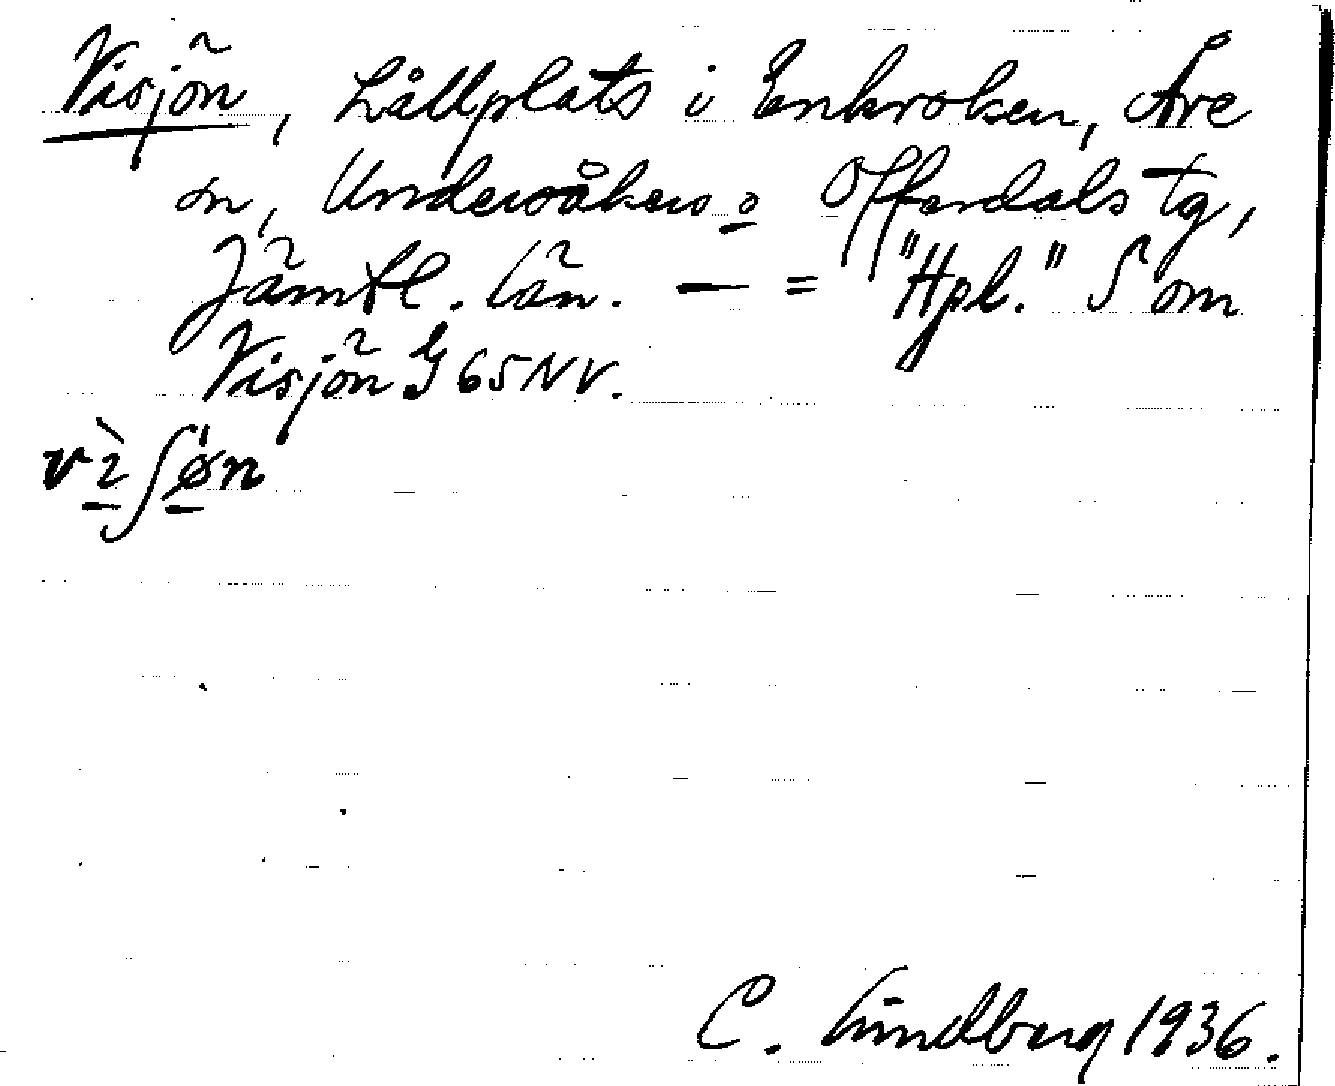 Visjön, hållplats i Enkroken, Åre
sn, Undersåkers o Offerdals tg,
Jämtl. län. — = "Hpl." S om
Visjön G 65 NV.
vìʃøn
C. Lindberg 1936.